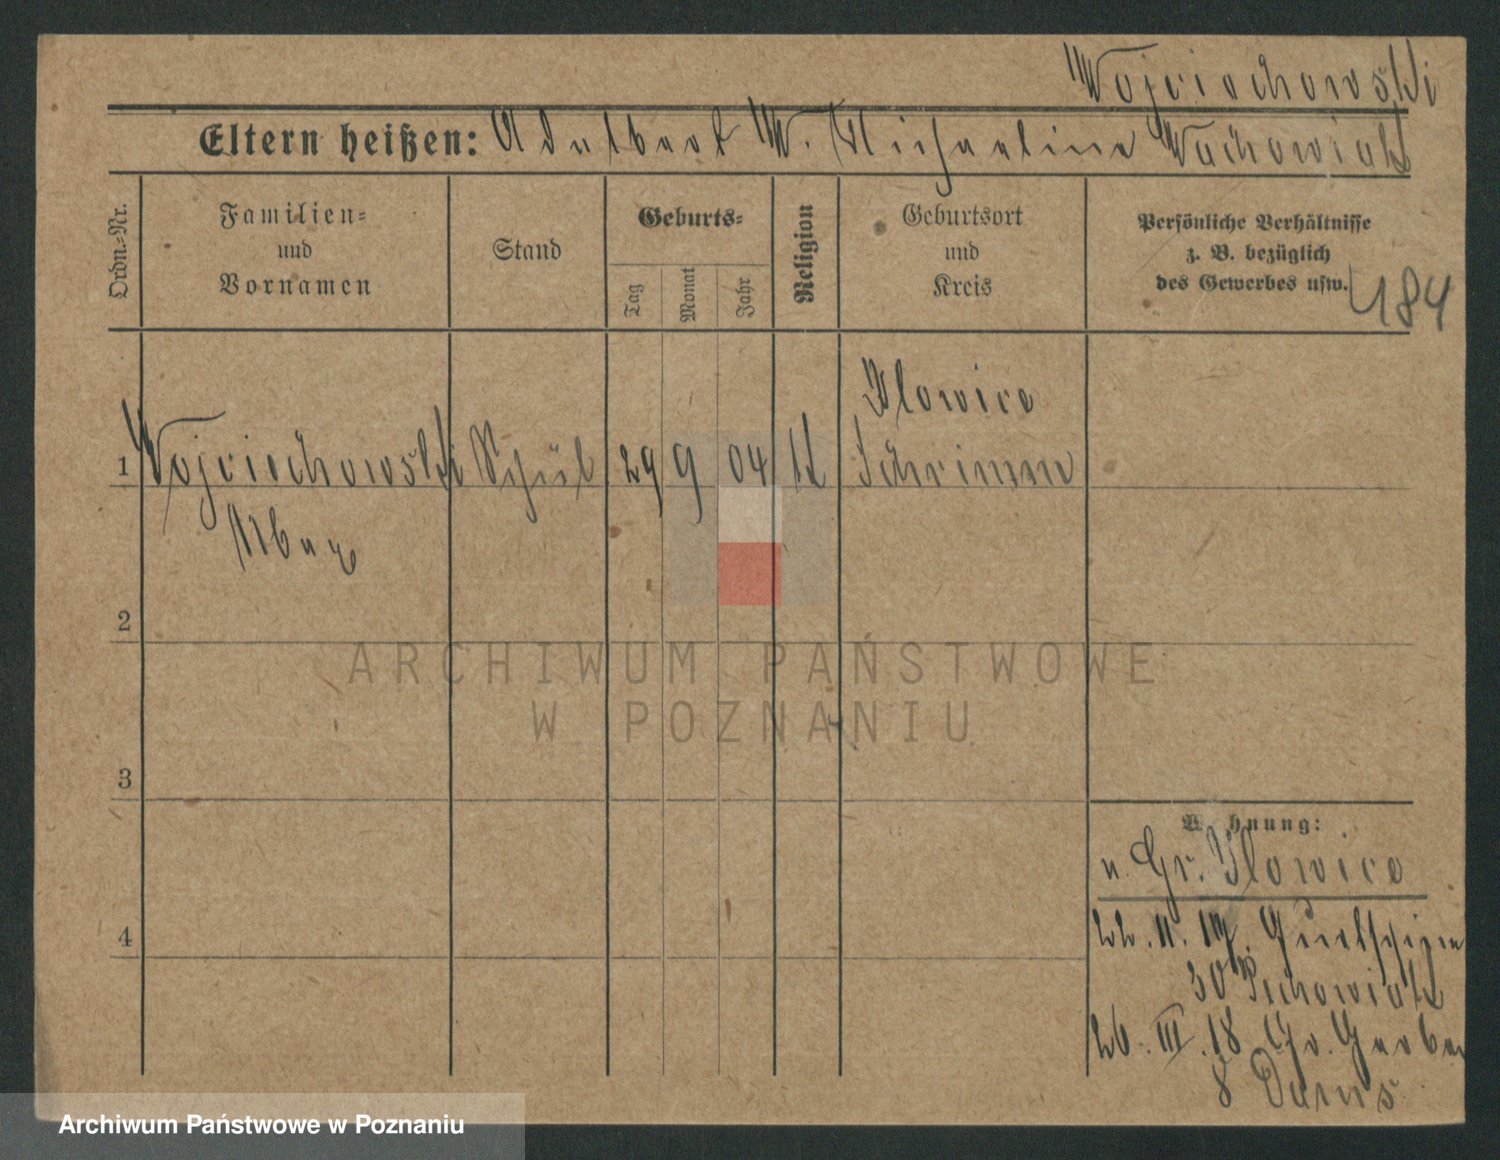 Wojciechowski
Eltern heißen: Adalbert W. Michaeline Wachowiak
Ordn.=Nr.
Familien=
und
Vornamen
Stand
Geburts=
Tag
Monat
Jahr
Religion
Geburtsort
und
Kreis
Persönliche Verhältnisse
z. B. bezüglich
des Gewerbes usw.
184
Ilowice
1 Wojciechowski Schül 29 9 04 k Schrimm
2
3
4
Wohnung:
n. Gr. Ilowice
22. 11. 17.
30
26. III. 18 Gr. Gerber
8
ARCHIWUM PAŃSTWOWE
W POZNANIU
Archiwum Państwowe w Poznaniu